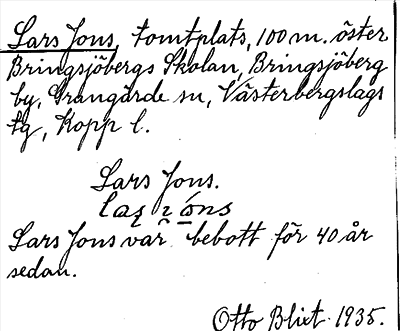 Lars Jons, tomtplats, 100 m. öster
Bringsjöbergs Skolan, Bringsjöberg
by, Grangärde sn, Västerbergslags
tg, Kopp l.
Lars Jons.
Lars Jons var bebott för 40 år
sedan.
Otto Blixt 1935.